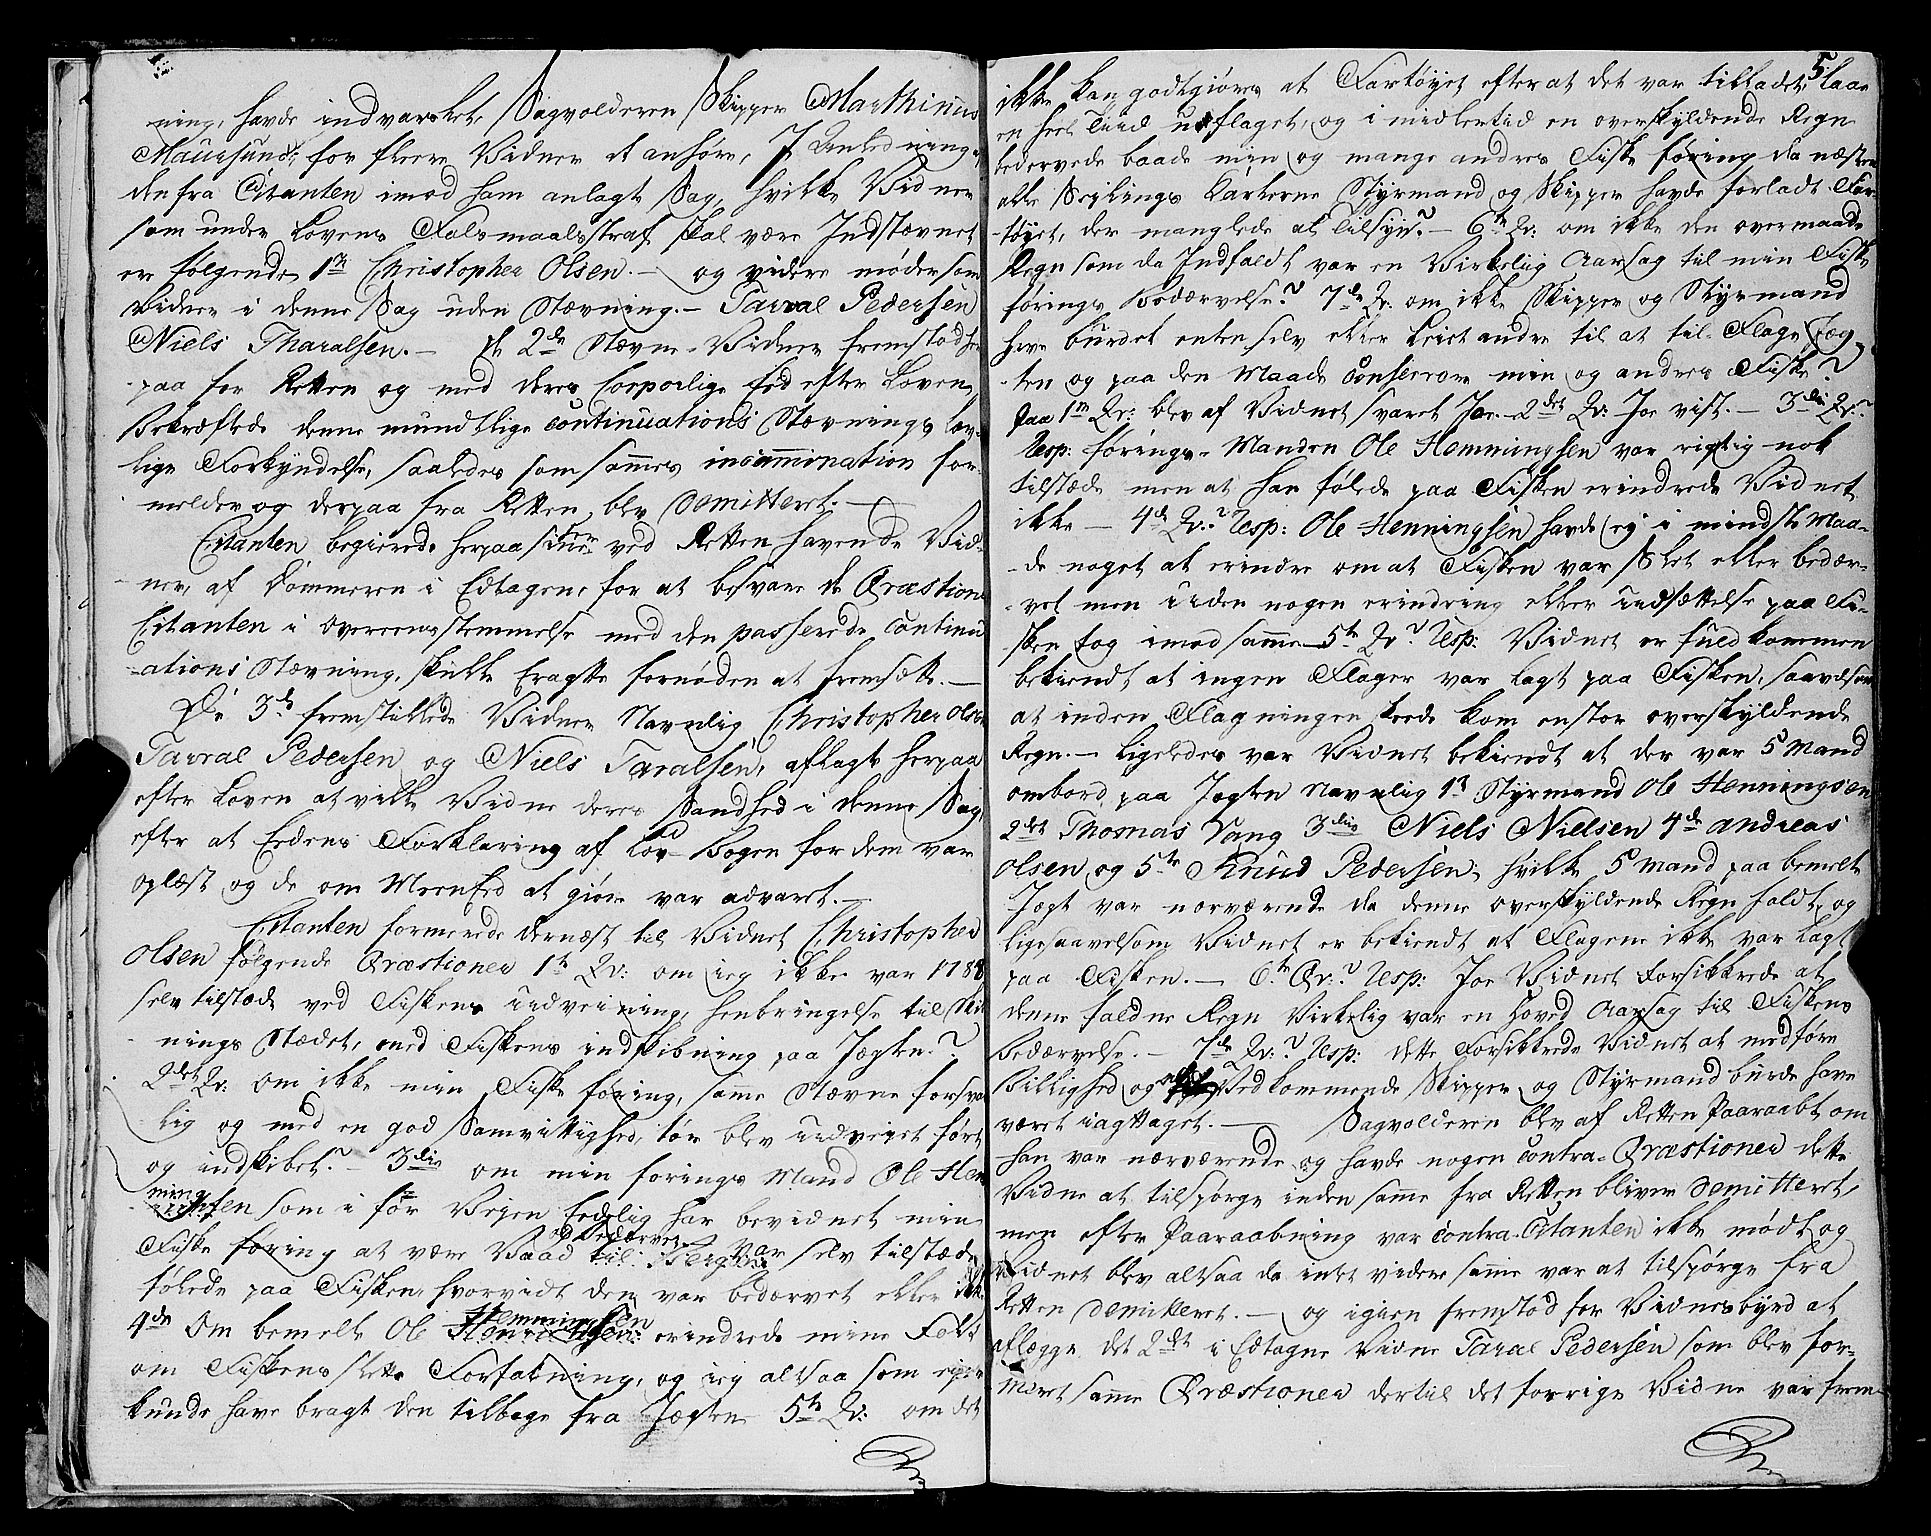 ning, havde indvarslet, Sagvolderen Skipper Marthinus
Mauesund, for fleere Vidner at anhøre, I Anledning af
den fra Citanten imod ham anlagte Sag, hvilke Vidner
som under Lovens Falsmaals straf skal være Indstævnet
er følgende, 1ste Christopher Olsen. - og videre møder som
Vidner i denne Sag uden Stævning. - Tarral Pedersen
Niels Tharalsen. - de 2de Stævne-Vidner fremstod her
paa for Retten og med deres Corporlige Eed efter Loven,
Bekræftede denne mundtlige continuations Stævnings lov-
lige Forkyndelse, saaledes som sammes incamination for-
melder og derpaa fra Retten, blev demitteret. -
Citanten begierede herpaa sine ved Retten havende Vid-
ner, af Dommeren i Edtagen, for at besvare de Qræstioner
Citanten i overeensstemmelse med den passerede Continu
-ations Stævning, skulle Eragte fornøden at fremsætte. -
De 3de fremstillede Vidner Navnlig Christopher Olsen
Tarral Pedersen og Niels Taralsen, aflagte herpaa
efter Loven at ville Vidne deres Sandhed i denne Sag,
efter at Eedens Forklaring af Lov-Bogen for dem var
oplæst og de om MeenEd at giøre var advaret. -
Citanten formerede dernæst til Vidnet Christopher
Olsen følgende Qræstioner 1te Qv: om ieg ikke var 1788
selv tilstæde ved Fiskens udveining, henbringelse til
nings Stædet, med Fiskens indskibning paa Jægten?
2det Qv: om ikke min Fiske føring, samme Stævne forsva
lig og med en god Samvittighed, tør blev udveiet ført
og indskibet? - 3die om min førings Mand Ole Hen
ning
sen som i før Vejen Eedelig har bevidnet min
og bedærvet
Fiske føring at være Vaad til Bergen var selv tilstæde
følede paa Fisken, hvorvidt den var bedærvet eller ikke
Hemmingsen
4de Om bemelte Ole Henningsen: erindrede mine Folk
om Fiskens slette Forfatning, og ieg altsaa som
kunde have bragt den tilbage fra Jægten 5te Qv: om det
5
ikke kan godtgiøres at Fartøyet efter at det var tilladet, laae
en heel Tiid uflaget, og imidlertid en overskyldende Regn
bedervede baade min og mange andres Fiske føring da næsten
alle Seylings Karlerne Styrmand og Skipper havde forladt Far
-tøyet, der manglede al Tilsyn? - 6te Qv: om ikke den overmaade
Regn som da Indfaldt var en Virkelig Aarsag til min Fiske
førings Bedærvelse? 7de Qv: om ikke Skipper og Styrmand
have burdet enten selv eller leiet andre til at til-Flage Jæg-
-ten og paa den Maade Conservere min og andres Fiske?
Paa 1te Qv: blev af Vidnet svaret Joe. - 2det Qv: Joe vist. - 3die Qv:
Resp: førings-Manden Ole Hemmingsen var rigtig nok
tilstæde men at han følede paa Fisken erindrede Vidnet
ikke - 4de Qv:? Resp: Ole Henningsen havde ej i mindste Maa-
-de noget at erindre om at Fisken var Slet eller bedær-
-vet men uden nogen erindring eller udsættelse paa Fi-
sken tog imod samme - 5te Qv? Resp: Vidnet er fuldkommen
bekiendt at ingen Flager var lagt paa Fisken, saavelsom
at inden Flagningen skeede kom en stor overskyldende
Regn. - Ligeledes var Vidnet bekiendt at der var 5 Mand
ombord paa Jægten Navnlig 1t Styrmand Ole Henningsen
2det Thomas Vang 3die Niels Nielsen 4de Andreas
Olsen og 5te Knud Pedersen, hvilke 5 Mand paa bemelte
Jægt var nærværende da denne overskyldende Regn faldt, og
ligesaavelsom Vidnet er bekiendt at Flagene ikke var lagt
paa Fisken. - 6te Qv:? Resp: Joe Vidnet forsikkrede at
denne faldne Regn Virkelig var en Hoved Aarsag til Fiskens
Bedærvelse. - 7de Qv:? Resp: dette forsikkrede Vidnet at medføre
Billighed og af Vedkommende Skipper og Styrmand burde have
været iagttaget. - Sagvolderen blev af Retten Paaraabt om
han var nærværende og havde nogen contra-Qræstioner dette
Vidne at tilspørge inden samme fra Retten bliver demitteret,
men efter Paaraabning var Contra-Citanten ikke mødt og
Vidnet blev altsaa da intet videre samme var at tilspørge fra
Retten demitteret. - og igien fremstod for Vidnesbyrd at
aflægge det 2det i Edtagne Vidne Taral Pedersen som blev for-
meret samme Qræstioner dertil det forrige Vidne var frem